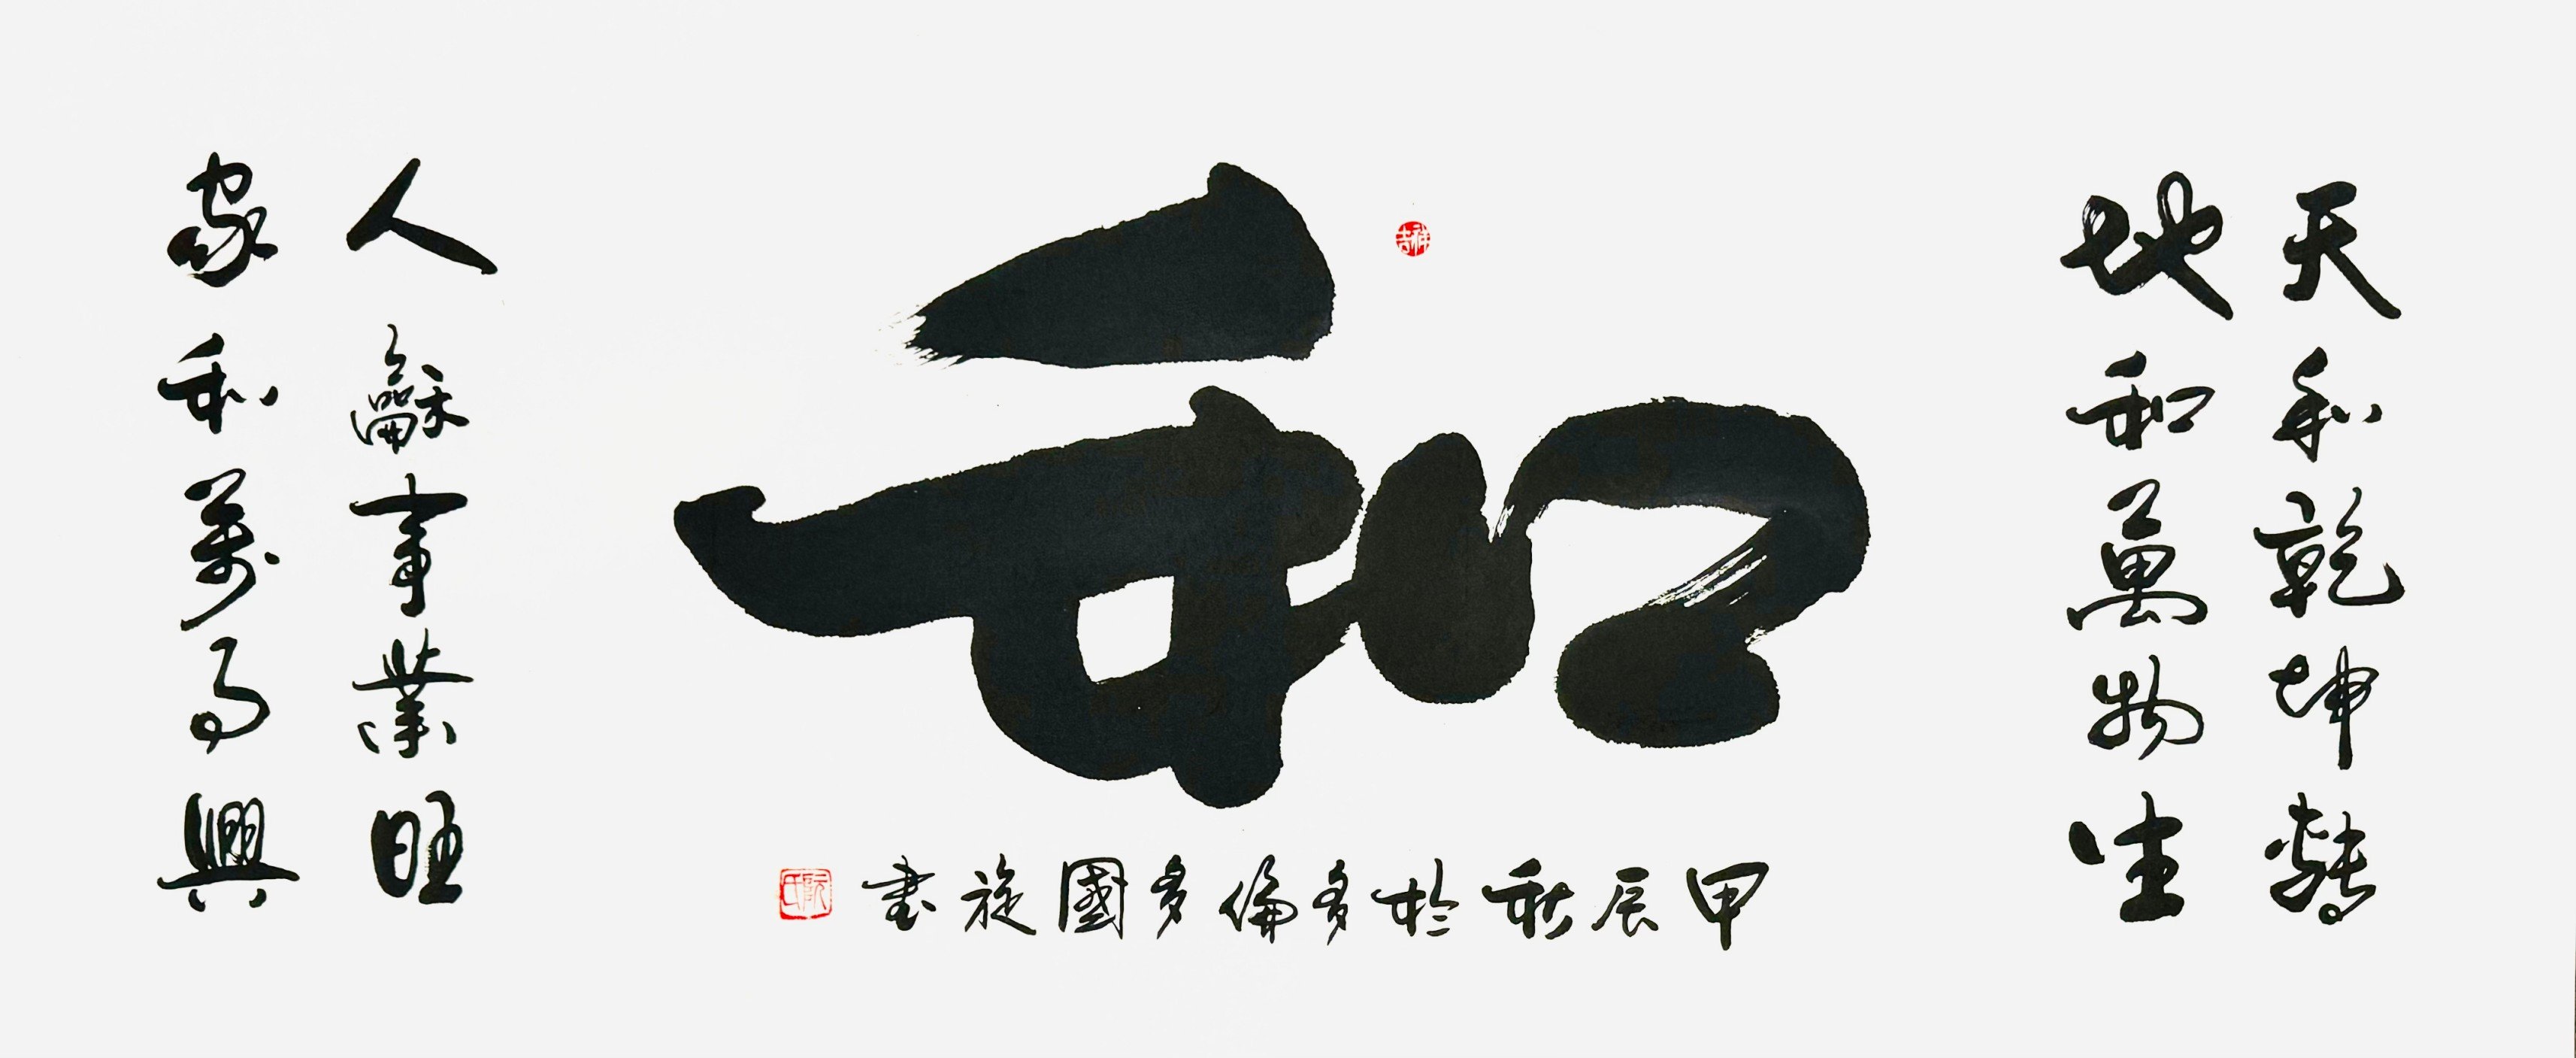 天和乾坤轉
地和萬物生
和
吉祥
人龢事業旺
家和萬事興
甲辰秋於多倫多國旋書
阮氏